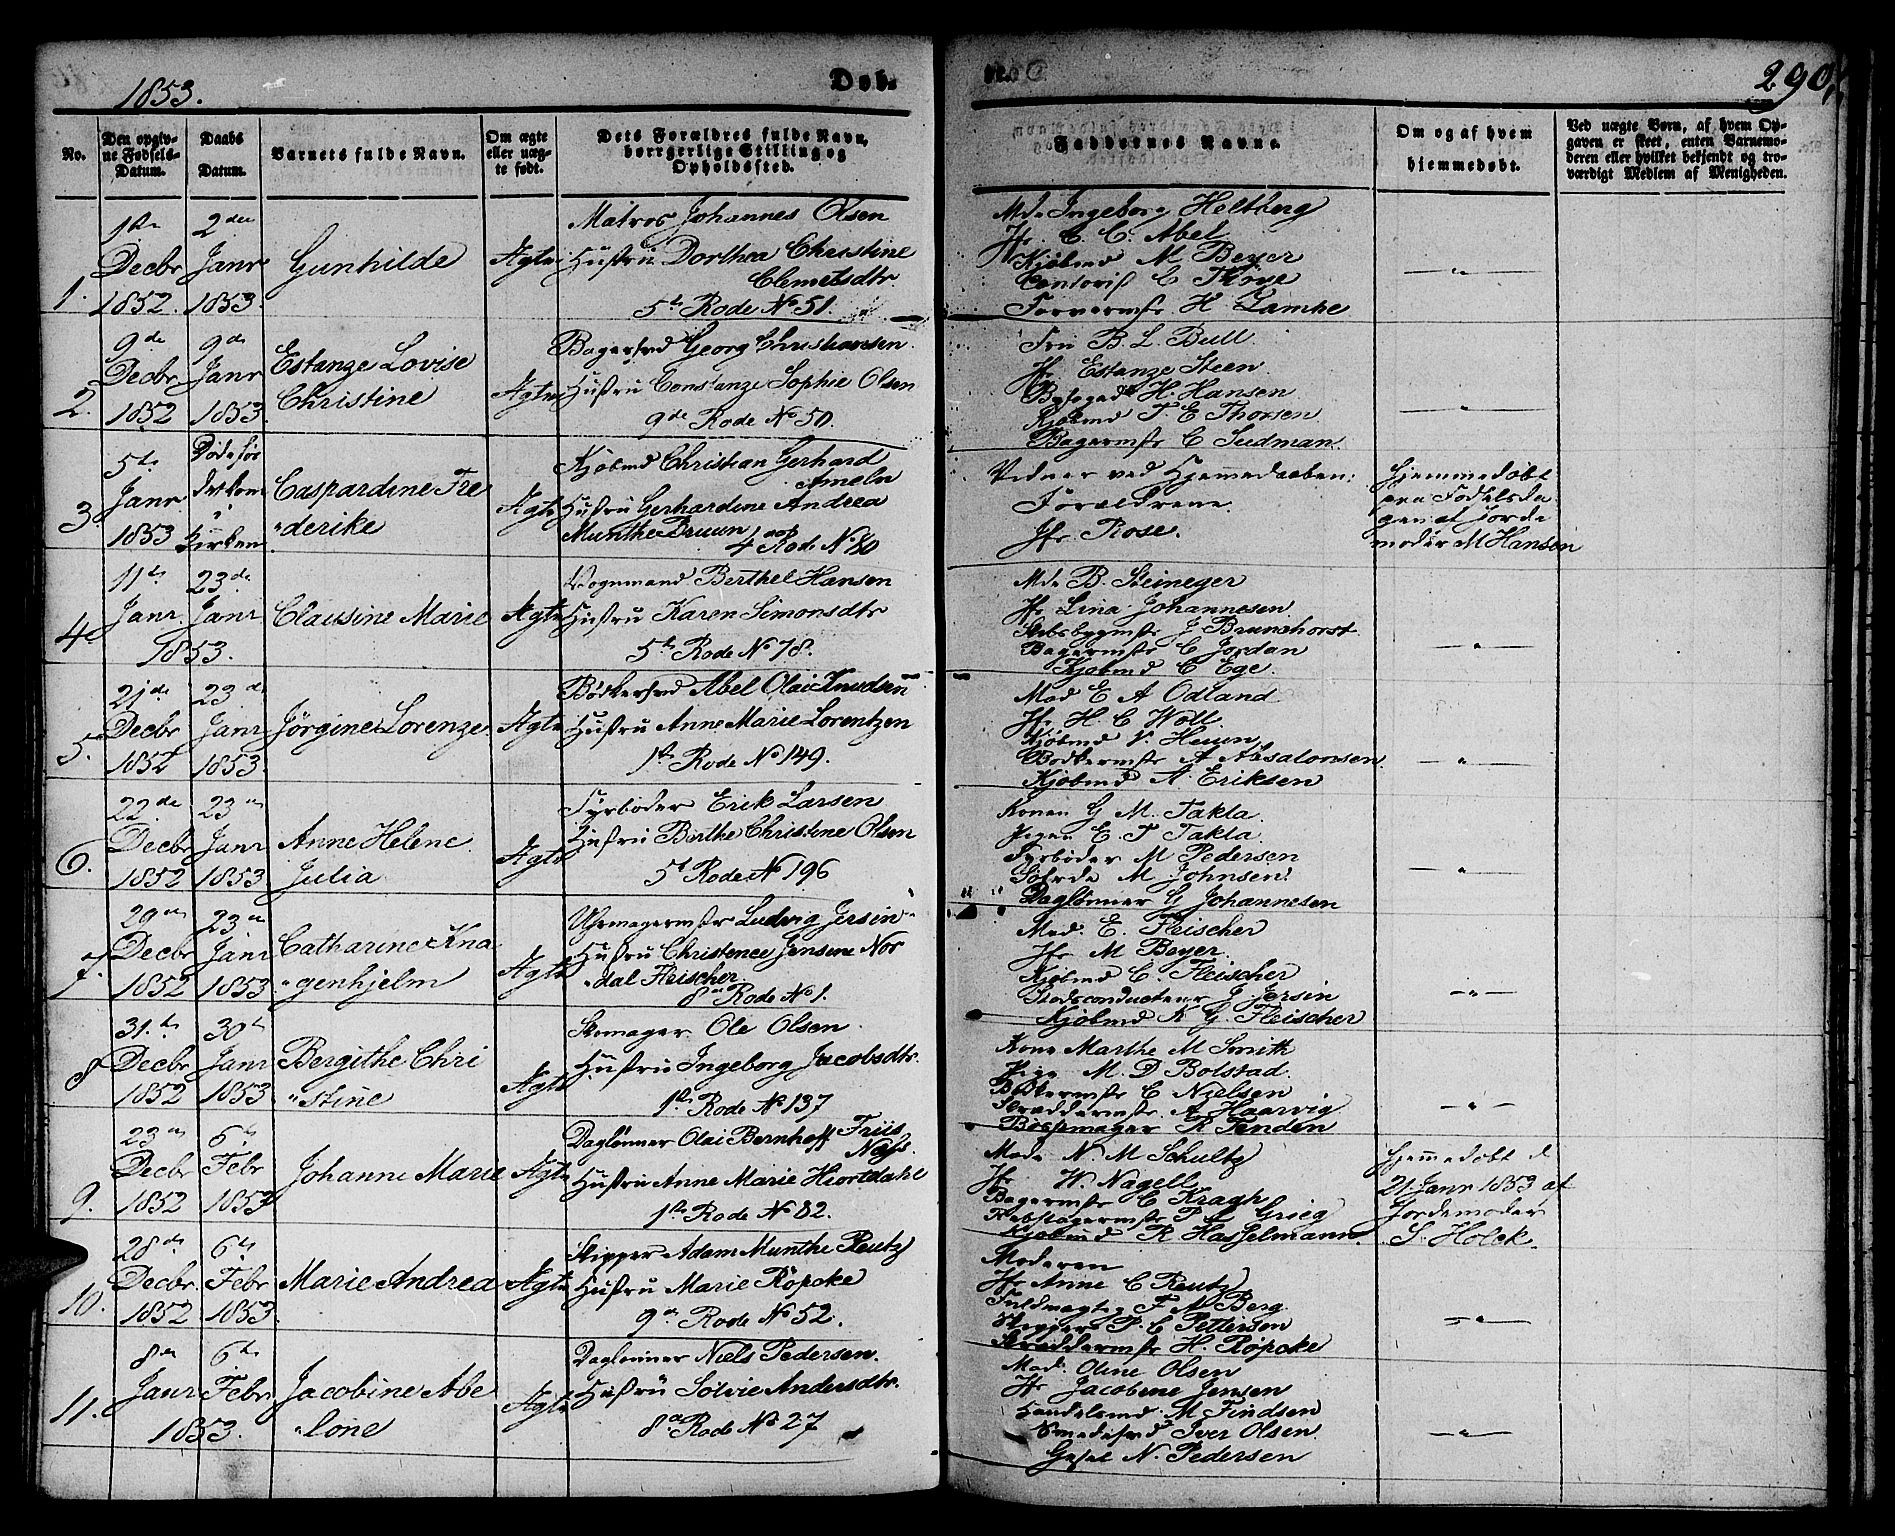 1853.
Døb.
290.
No.
Den opgiv-
ne Fødsels-
Datum.
Daabs
Datum.
Barnets fulde Navn.
Om ægte
eller uæg-
te født.
Dets Forældres fulde Navn,
borgerlige Stilling og
Opholdssted.
Faddernes Navne.
Om og af hvem
hjemmedøbt.
Ved uægte Børn, af hvem Op-
gaven er skeet, enten Barnemo-
deren eller hvilket bekjendt og tro-
værdigt Medlem af Menigheden.
1.
1ste
Decbr
1852.
2den
Janr
1853.
Gunhilde
Ægte
Matros Johannes Olsen
Hustru Dorthea Christine
Clemetsdtr.
5te Rode No 51.
Mde Ingeborg Heltberg
Jfr. C. C. Abel
Kjøbmd M Beyer
C Thrye
Farvermstr H Lamke
—"—
2.
9de
Decbr
1852
9de
Janr
1853.
Estanze Lovise
Christine
Ægte
Bagersvd Georg Christiansen.
Hustru Constanze Sophie Olsen
9de Rode No 50.
Fru B. L. Bull
Jfr Estanze Steen
H. Hansen
Kjøbmd T. E Thorsen
Bagermstr C Sudman.
—"—
3.
5te
Janr
1853
Døde før
det kom
i
Kirken.
Caspardine Fre
"derike
Ægte
Kjøbmd Christian Gerhard
Ameln
Hustru Gerhardine Andrea
Munthe Bruun
4de Rode No 80
Vidner ved Hjemmedaaben:
Forældrene.
Jfr. Rose.
Hjemmedøbt
paa Fødselsda
gen af Jorde
moder M Hansen
4
11te
Janr.
23de
Janr
1853.
Clausine Marie
Ægte
Vognmand Berthel Hansen
Hustru Karen Simonsdtr
5te Rode No 78.
Mde B. Steineger
Jfr Lina Johannesen
Skibsbygmstr J Brunchorst.
Bagermstr C Jordan
Kjøbmd C Ege.
—"—
5.
21de
Decbr
1852
23de
Janr
1853.
Jørgine Lorenze
Ægte
Bødkersvd Abel Olai Knudsen
Hustru Anne Marie Lorentzen
1ste Rode No 149.
Mad E A Odland
Jfr H. C Woll.
Kjøbmd V. Heuun
Bødkermstr A Absalonsen.
Kjøbmd A. Eriksen
—"—
6.
22de
Decbr
1852
23de
Janr
1853
Anne Helene
Julia
Ægte
Fyrbøder Erik Larsen
Hustru Birthe Christine Olsen
5t Rode No 196
Konen G M. Takla
Pigen E. T Takla
Fyrbøder M Pedersen
M Johnsen.
Dagløнner G Johannesen
—"—
7.
29de
Decbr
1852
23de
Janr
1853
Catharine Kna
"genhjelm
Ægte
Uhrmagermstr Ludvig Jersin
Hustru Christence Jensine Nor
"dal Fleischer.
8de Rode No 1.
Mad. E. Fleischer
Jfr M Beyer.
Kjøbmd C. Fleischer
Stadsconducteur J Jersin
Kjøbmd K G. Fleischer
—"—
8
31te
Decbr
1852
30te
Janr
1853
Bergithe Chri
"stine
Ægte
Skomager Ole Olsen
Hustru Ingeborg Jacobsdtr.
1ste Rode No 137
Kone Marthe M Smith
Pige M. D Bolstad.
Bødkermstr C Nielsen
Skræddermstr. A Haarvig
Børsemager R Tenden
—"—
9.
23de
Decbr
1852
6te
Febr
1853
Johanne Marie
Ægte
Dagløнner Olai Bernhoff Friis
Næss.
Hustru Anne Marie Hiortdahl
1ste Rode No 82.
Made N. M Schultz
Jfr. W. Nagell
Bagermstr C Kragh
Rebslagermstr P. L Grieg
Kjøbmd R Hasselmann.
Hjemmedøbt d
21 Janr 1853 af
Jordemoder
S. Holck.
10.
28de
Decbr.
1852
6te
Febr
1853
Marie Andrea
Ægte
Skipper Adam Munthe Reutz
Hustru Marie Röpcke
9de Rode No 52.
Moderen
Jfr Anne C Reutz
Fuldmægtig F M Berg.
Skipper P. C Pettersen
Skræddermstr H. Röpcke
—"—
11.
8de
Janr
6te
Febr.
1853.
Jacobine Abe
"lone
Ægte
Dagløнner Niels Pedersen.
Hustru Sølvie Andersdtr.
8de Rode No 27
Mad. Oline Olsen
Jfr Jacobine Jensen
Handelsmd. M Findsen
Smedesvd Iver Olsen
Gesel N. Pedersen
—"—